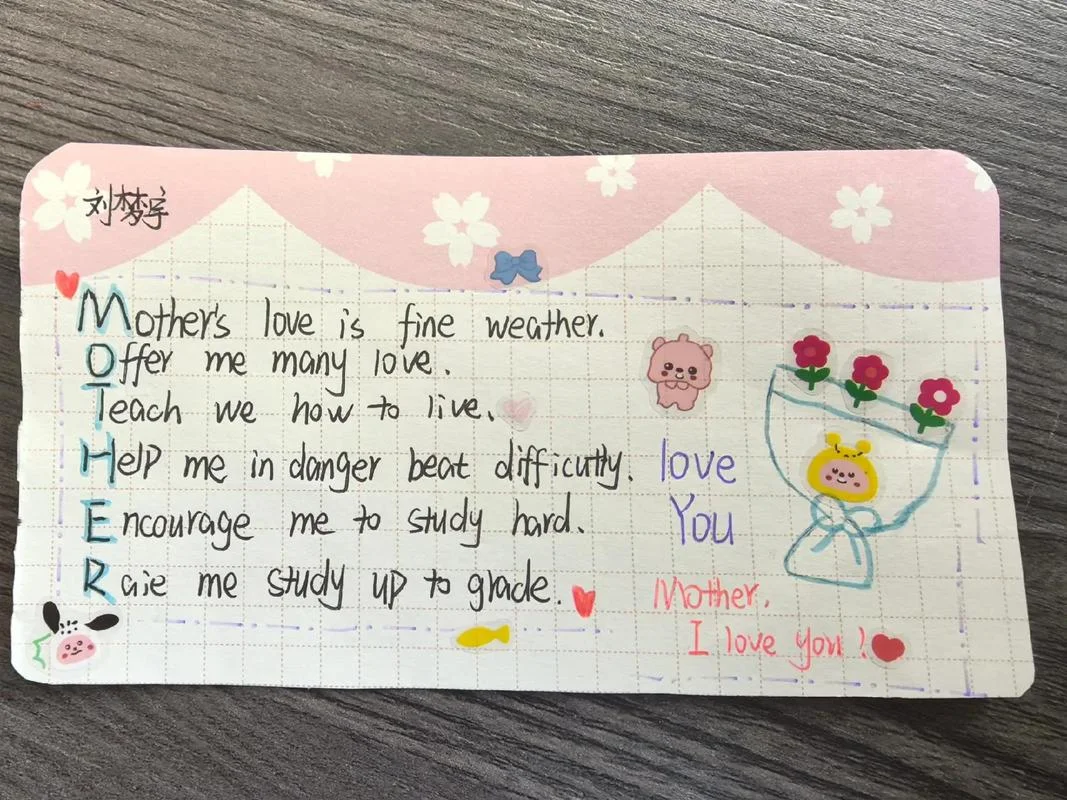 刘梦宇
Mother's love is fine weather.
Offer me many love.
Teach we how to live.
Help me in danger beat difficutly.
Encourage me to study hard.
Raie me study up to glade.
love
You
Mother.
I love you!